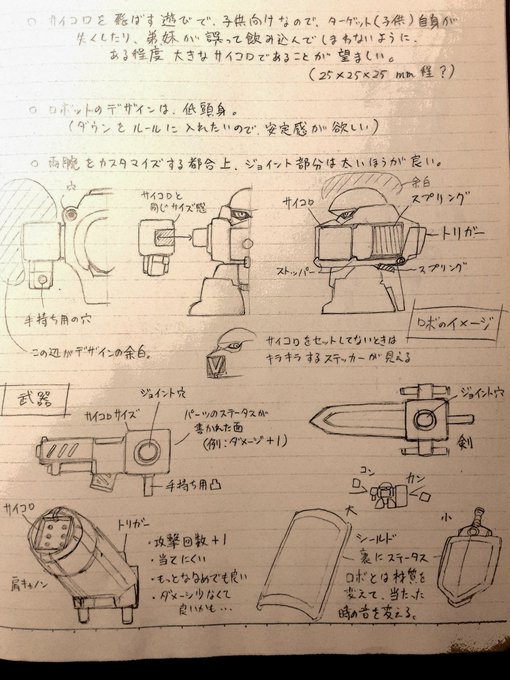 ○ サイコロを飛ばす遊びで、子供向けなので、ターゲット(子供)自身が
失くしたり、弟妹が誤って飲み込んでしまわないように、
ある程度大きなサイコロであることが望ましい。
(25×25×25 mm 程?)
○ ロボットのデザインは、低頭身。
(ダウンをルールに入れたいので、安定感が欲しい)
○ 両腕をカスタマイズする都合上、ジョイント部分は太いほうが良い。
穴
サイコロと
同じサイズ感
余白
サイコロ
スプリング
トリガー
ストッパー
スプリング
手持ち用の穴
この辺がデザインの余白。
ロボのイメージ
サイコロをセットしてないときは
キラキラするステッカーが見える
武器
ジョイント穴
サイコロサイズ
パーツのステータスが
書かれた面
(例:ダメージ+1)
手持ち用凸
ジョイント穴
剣
コン
カン
サイコロ
トリガー
肩キャノン
・攻撃回数+1
・当てにくい
・もっとななめでも良い
・ダメージ少なくて
良いかも…
大
シールド
小
裏にステータス
ロボとは材質を
変えて、当たった
時の音を変える。